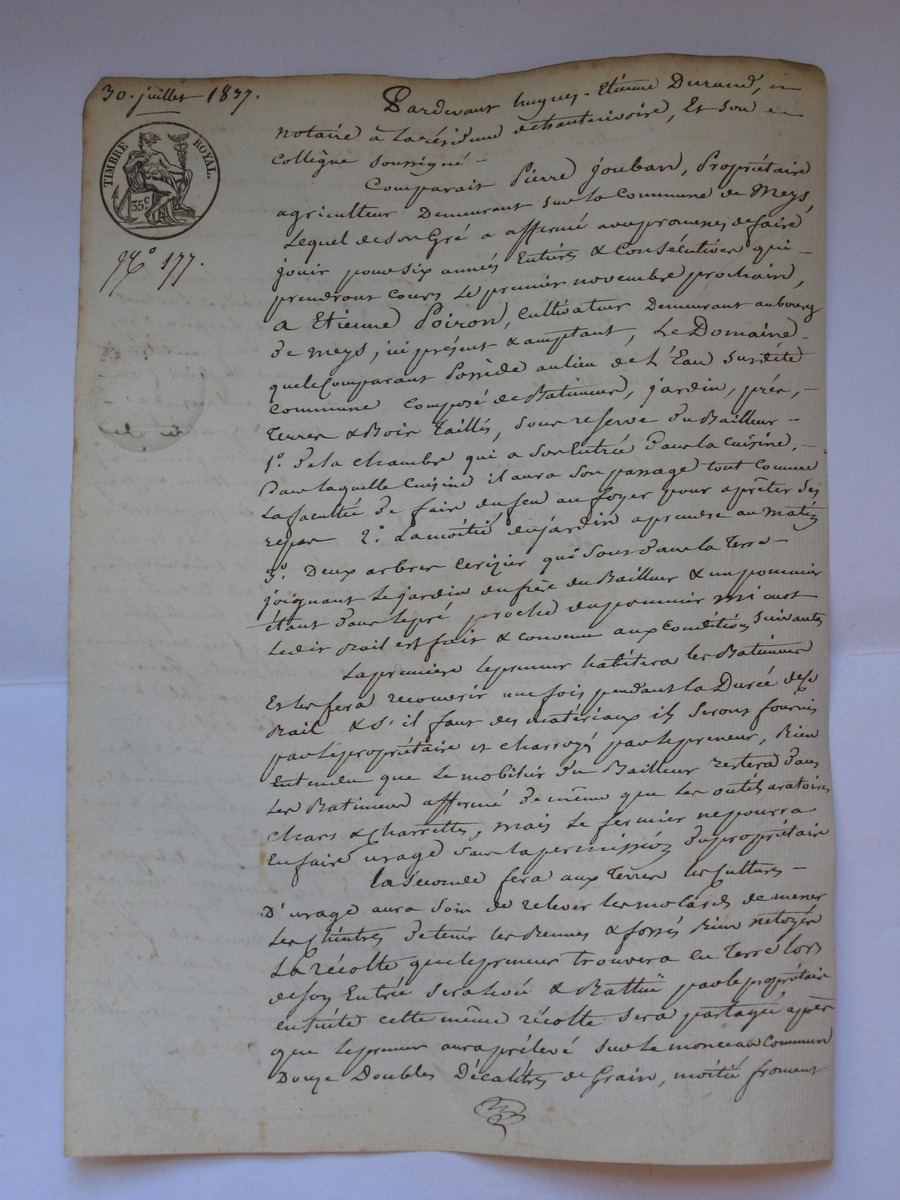 30. juillet 1837.
TIMBRE ROYAL.
35c
N° 177.
Pardevant hugues-Etienne Durand,
notaire à la résidence de hauterivoire, Et son
collègue soussigné -
Comparait Pierre jouban, Propriétaire
agriculteur Demeurant sur la Commune de Meys,
Lequel de son Gré a affermé avec promesses de faire
jouir pour six années Entières & Consécutives qui -
prendront cours le premier novembre prochain,
a Etienne Poiron, Cultivateur Demeurant au bourg
de meys, ici présent & acceptant, Le Domaine -
que le Comparant Possède au lieu de L'Eau susdite
Commune Composé de Batiments, jardin, prés, -
Terres & Bois Taillés, sous reserve du Bailleur -
1°. de la chambre qui a son Entrée dans la Cuisine, -
Dans laquelle Cuisine il aura son passage tout Comme
La faculté de faire du feu au foyer pour aprêter ses
repas 2°. La moitié du jardin a prendre au matin
3°. Deux arbres Cerisier qui sont dans la Terre -
joignant Le jardin du frère du Bailleur & un pommier
étant dans le pré proche du pommier
Ledit Bail est fait & convenu aux Conditions suivantes
La premiere le preneur habitera les Batiments
Et les fera recouvrir une fois pendant la Durée de ce
Bail & s'il faut des matériaux ils seront fournis
par le propriétaire et charroyés par le preneur, Bien
Entendu que Le mobilier du Bailleur restera dans
Les Batiments affermé de même que les outils aratoires
chars & Charrettes, mais Le fermier ne pourra
En faire usage sans la permission du propriétaire
la Seconde fera aux Terres les Cultures -
D'usage aura soin de relever les molards de mener
Les Chintres de tenir les Rennes & fossés Bien netoyés
La récolte que le preneur trouvera en Terre lors
de son Entrée sera levée & Battüe par le propriétaire
ensuite cette même récolte sera partagée après
que le preneur aura prélevé sur Le monceau Commun
Douze Doubles Décalitres de Grain, moitié froment